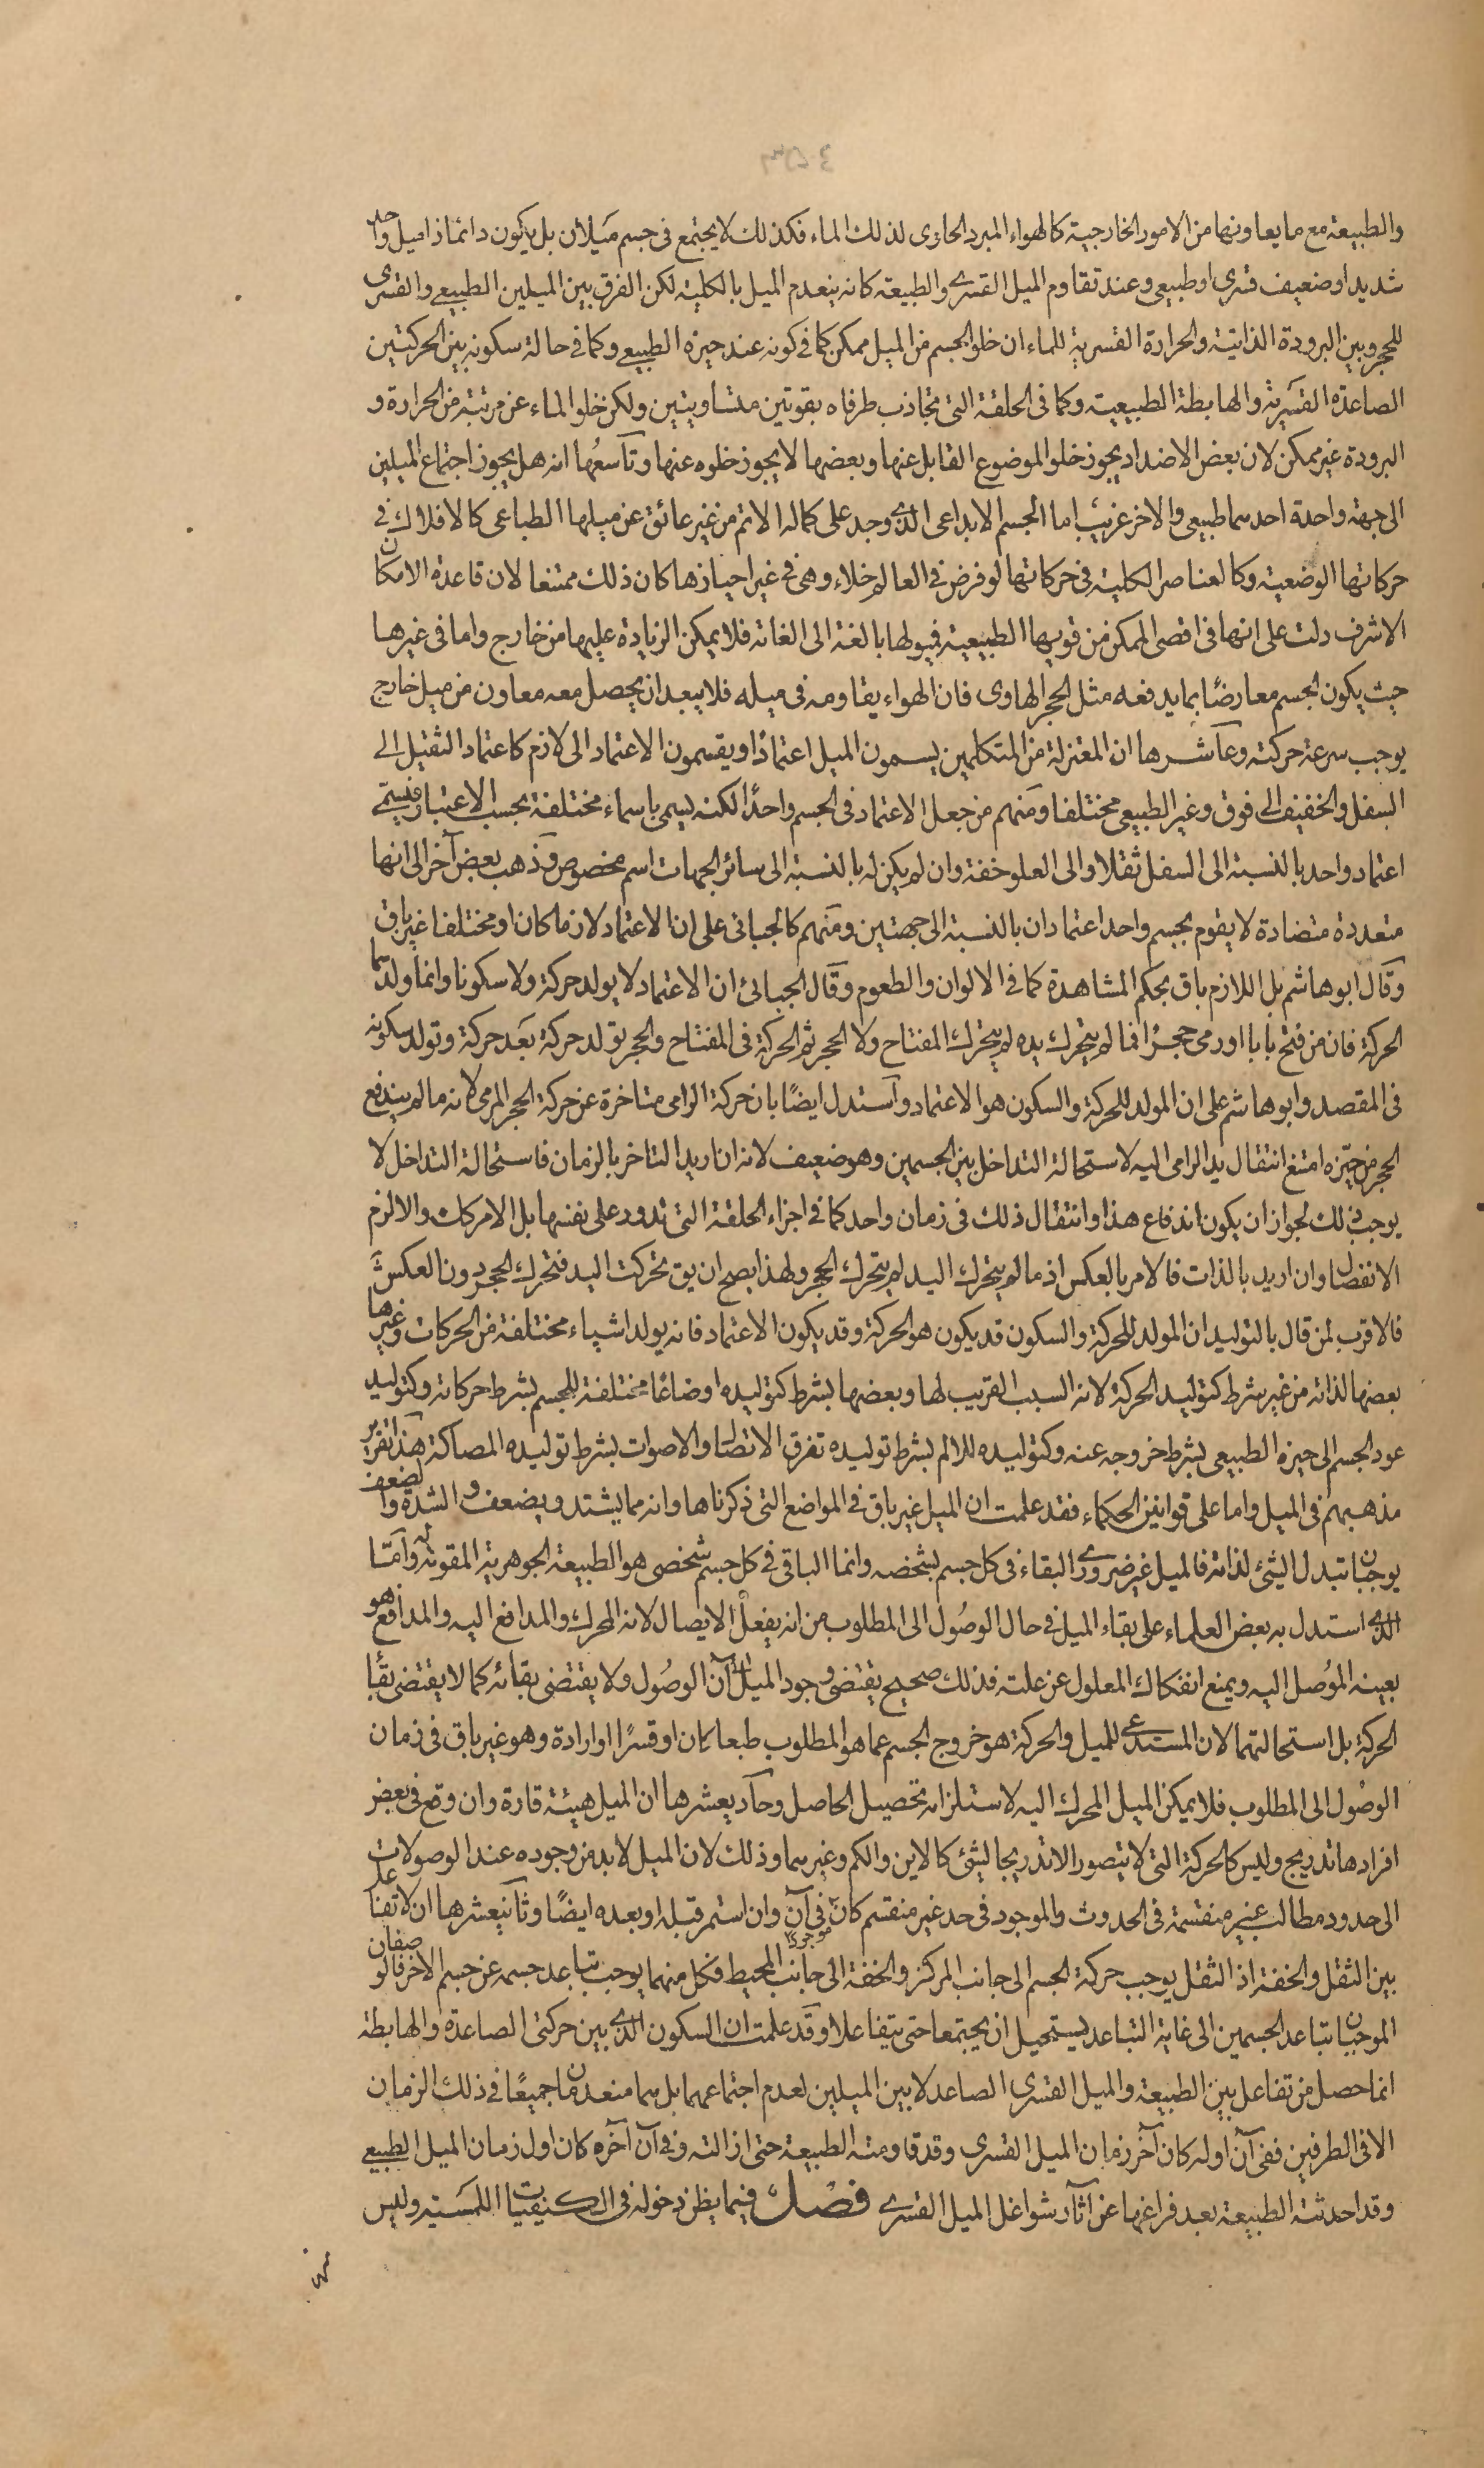 والطبيعة مع ما يعاونها من الامور الخارجية كالهواء المبرد الحاوى لذلك الماء فكذلك لا يجتمع فى جسم ميلان بل يكون دائما ذا ميل واحد
شديد او ضعيف قسرى او طبيعى وعند تقاوم الميل القسرى والطبيعة كانه ينعدم الميل بالكلية لكن الفرق بين الميلين الطبيعى والقسرى
للحجر وبين البرودة الذاتية والحرارة القسرية للماء ان خلو الجسم من الميل ممكن كما فى كونه عند حيزه الطبيعى وكما فى حالة سكونه بين الحركتين
الصاعدة القسرية والهابطة الطبيعية وكما فى الحلقة التى تجاذب طرفاه بقوتين متساويتين ولكن خلو الماء عن مرتبة من الحرارة و
البرودة غير ممكن لان بعض الاضداد يجوز خلو الموضوع القابل عنها وبعضها لا يجوز خلوه عنها وتاسعها انه هل يجوز اجتماع الميلين
الى جهة واحدة احدهما طبيعى والاخر غريب اما الجسم الابداعى الذى وجد على كماله الاتم من غير عائق عن ميلها الطباعى كالافلاك فى
حركاتها الوضعية وكالعناصر الكلية فى حركاتها لو فرض فى العالم خلاء وهى فى غير احيازها كان ذلك ممتنعا لان قاعدة الامكان
الاشرف دلت على انها فى اقصى الممكن من قوتها الطبيعية فميولها بالغة الى الغاية فلا يمكن الزيادة عليها من خارج واما فى غيرها
حيث يكون الجسم معارضا بما يدفعه مثل الحجر الهاوى فان الهواء يقاومه فى ميله فلا يبعد ان يحصل معه معاون من ميل خارج
يوجب سرعة حركته وعاشرها ان المعتزلة من المتكلمين يسمون الميل اعتمادا ويقسمون الاعتماد الى لازم كاعتماد الثقيل الى
السفل والخفيف الى فوق وغير الطبيعى مختلفا ومنهم من جعل الاعتماد فى الجسم واحدا لكنه يسمى باسماء مختلفة بحسب الاعتبار فيسمى
اعتماد واحد بالنسبة الى السفل ثقلا والى العلو خفة وان لم يكن له بالنسبة الى سائر الجهات اسم مخصوص وذهب بعض آخر الى انها
متعددة متضادة لا يقوم بجسم واحد اعتمادان بالنسبة الى جهتين ومنهم كالجبائى على ان الاعتماد لازما كان او مختلفا غير باق
وقال ابو هاشم بل اللازم باق بحكم المشاهدة كما فى الالوان والطعوم وقال الجبائى ان الاعتماد لا يولد حركة ولا سكونا وانما ولدهما
الحركة فان من فتح بابا او رمى حجرا فما لم يتحرك يده لم يتحرك المفتاح ولا الحجر ثم الحركة فى المفتاح والحجر تولد حركة بعد حركة وتولد سكونه
فى المقصد وابو هاشم على ان المولد للحركة والسكون هو الاعتماد واستدل ايضا بان حركة الرامى متاخرة عن حركة الحجر المرمى لانه ما لم يندفع
الحجر من حيزه امتنع انتقال يد الرامى اليه لاستحالة التداخل بين الجسمين وهو ضعيف لانه ان اريد التاخر بالزمان فاستحالة التداخل لا
يوجب ذلك لجواز ان يكون اندفاع هذا وانتقال ذلك فى زمان واحد كما فى اجزاء الحلقة التى تدور على نفسها بل الامر كك والا لزم
الانفصال وان اريد بالذات فالامر بالعكس اذ ما لم يتحرك اليد لم يتحرك الحجر ولهذا يصح ان يق تحركت اليد فتحرك الحجر دون العكس
فالاقرب لمن قال بالتوليد ان المولد للحركة والسكون قد يكون هو الحركة وقد يكون الاعتماد فانه يولد اشياء مختلفة من الحركات وغيرها
بعضها لذاته من غير شرط كتوليد الحركة لانه السبب القريب لها وبعضها بشرط كتوليده اوضاعا مختلفة للجسم بشرط حركاته وكتوليد
عود الجسم الى حيزه الطبيعى بشرط خروجه عنه وكتوليده للالم بشرط توليده تفرق الاتصال والاصوات بشرط توليده المصاكة هذا تقرير
مذهبهم فى الميل واما على قوانين الحكماء فقد علمت ان الميل غير باق فى المواضع التى ذكرناها وانه مما يشتد ويضعف والشدة والضعف
يوجبان تبدل الشئ لذاته فالميل غير ضرورى البقاء فى كل جسم بشخصه وانما الباقى فى كل جسم شخصى هو الطبيعة الجوهرية المقومة له واما
الذى استدل به بعض العلماء على بقاء الميل فى حال الوصول الى المطلوب من انه يفعل الايصال لانه المحرك والمدافع اليه والمدافع هو
بعينه الموصل اليه ويمنع انفكاك المعلول عن علته فذلك صحيح يقتضى وجود الميل فى آن الوصول ولا يقتضى بقائه كما لا يقتضى بقاء
الحركة بل استحالتهما لان المستدعى للميل والحركة هو خروج الجسم عما هو المطلوب طبعا كان او قسرا او ارادة وهو غير باق فى زمان
الوصول الى المطلوب فلا يمكن الميل المحرك اليه لاستلزامه تحصيل الحاصل وحاديعشرها ان الميل هيئة قارة وان وقع فى بعض
افرادها تدريج وليس كالحركة التى لا يتصور الا تدريجا لشئ كالاين والكم وغيرهما وذلك لان الميل لابد من وجوده عند الوصولات
الى حدود مطالب غير منقسمة فى الحدوث والموجود فى حد غير منقسم كان موجودا فى آن وان استمر قبله او بعده ايضا وثانيعشرها ان لا تفاعل
بين الثقل والخفة اذ الثقل يوجب حركة الجسم الى جانب المركز والخفة الى جانب المحيط فكل منهما يوجب تباعد جسمه عن جسم الاخر فالوصفان
الموجبان تباعد الجسمين الى غاية التباعد يستحيل ان يجتمعا حتى يتفاعلا وقد علمت ان السكون الذى بين حركتى الصاعدة والهابطة
انما حصل من تفاعل بين الطبيعة والميل القسرى الصاعد لا بين الميلين لعدم اجتماعهما بل هما منعدمان جميعا فى ذلك الزمان
الا فى الطرفين ففى آن اوله كان آخر زمان الميل القسرى وقد قاومته الطبيعة حتى ازالته وفى آن آخره كان اول زمان الميل الطبيعى
وقد احدثته الطبيعة بعد فراغها عن آثار شواغل الميل القسرى فصل فيما يظن دخوله فى الكيفيات اللمسية وليس